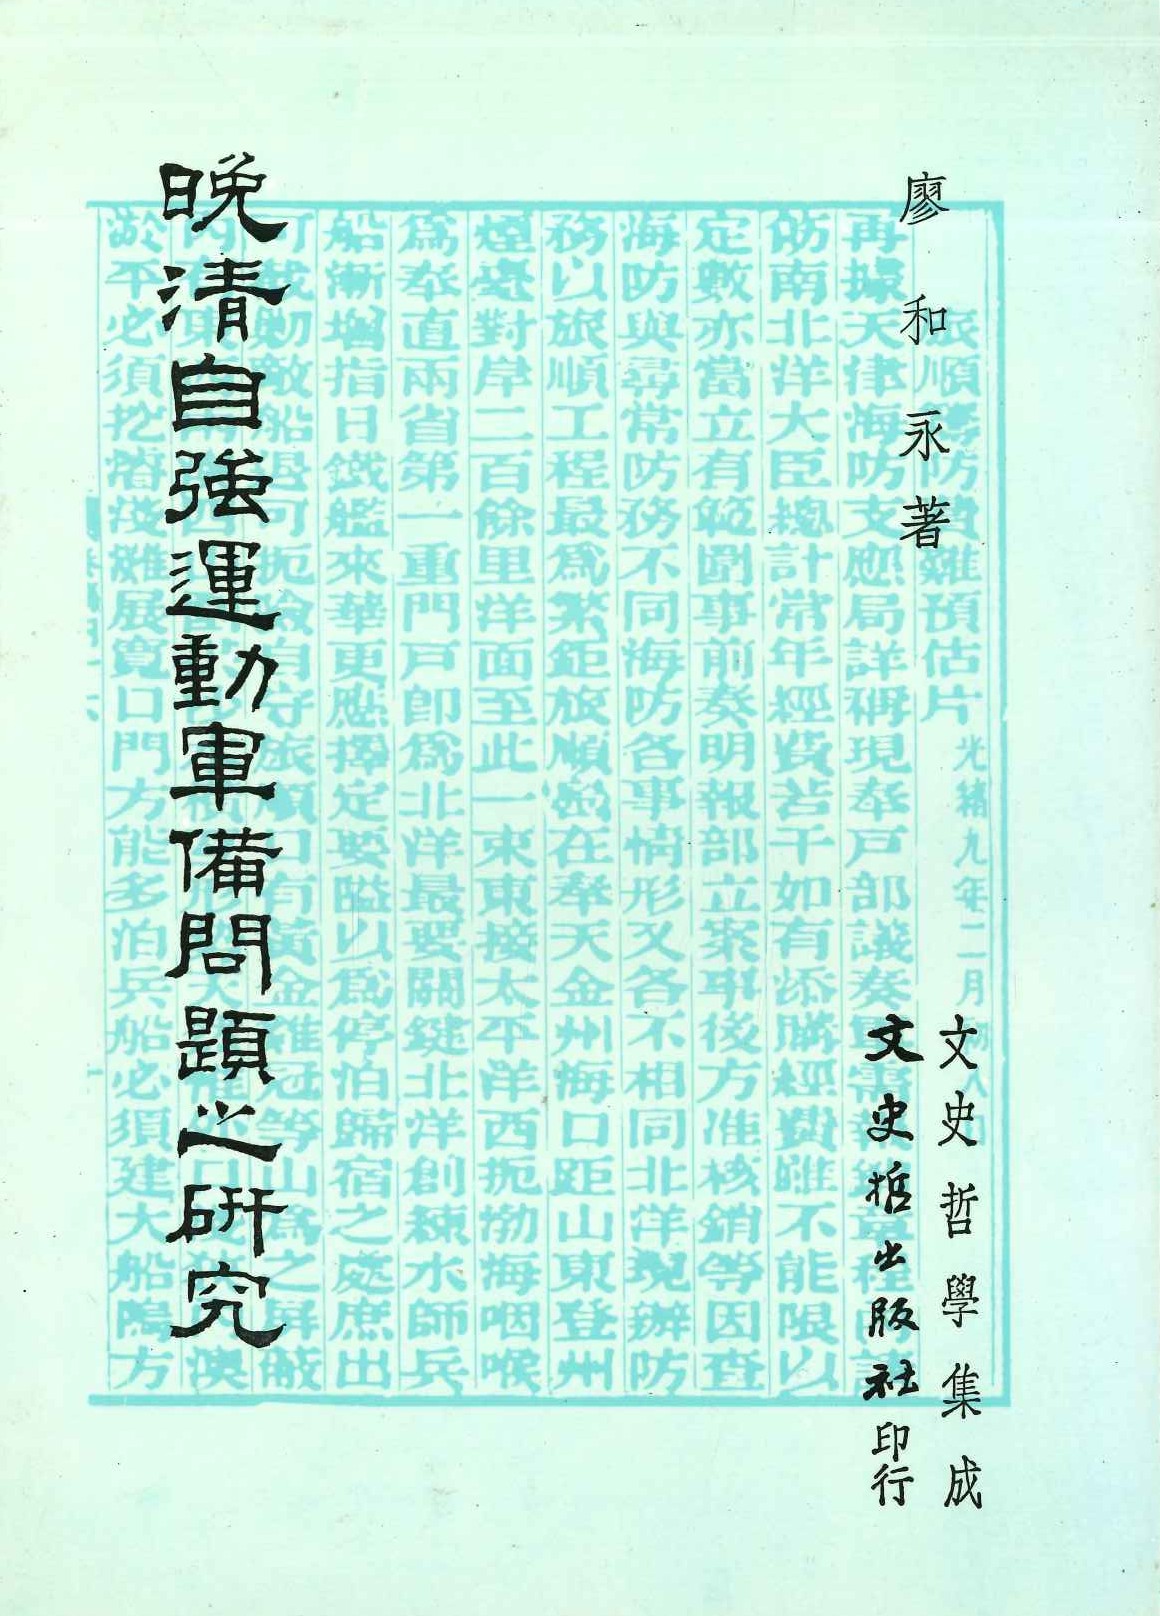 廖和永著
文史哲學集成
文史哲出版社印行
晚清自強運動軍備問題之研究
旅順防費難預估片 光緒九年二月
再據天津海防支應局詳稱現奉戶部議奏
仿南北洋大臣總計常年經費若干如有添購經費雖不能限以
定數亦當立有範圍事前奏明報部立案事後方准核銷等因查
海防與尋常防務不同海防各事情形又各不相同北洋現辦防
務以旅順工程最為繁鉅旅順在奉天金州海口距山東登州
煙臺對岸二百餘里洋面至此一束東接太平洋西扼渤海咽喉
為奉直兩省第一重門戶即為北洋最要關鍵北洋創練水師兵
船漸增指日鐵艦來華更應擇定要隘以為停泊歸宿之處庶出
可戰勁敵船可扼險自守旅順口有黃金雞冠等山為之屏蔽
淤平必須挖濬淺灘展寬口門方能多泊兵船必須建大船隖方